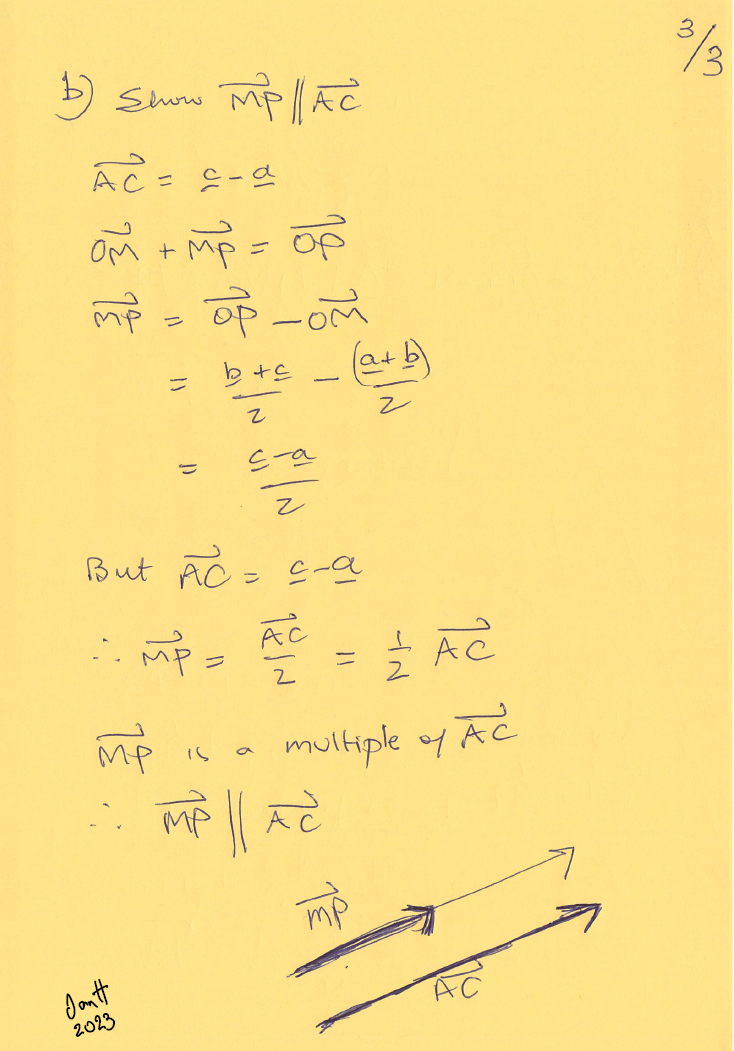 3/3
b) Show MP || AC
AC = c - a
OM + MP = OP
MP = OP - OM
= b + c / 2 - (a + b) / 2
= c - a / 2
But AC = c - a
∴ MP = AC / 2 = 1/2 AC
MP is a multiple of AC
∴ MP || AC
MP
AC
2023